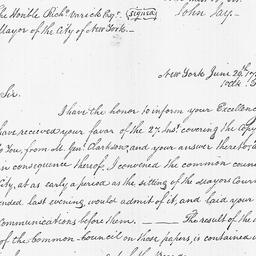 The Honble Richd. Varick Esqr. (signed)
John Jay.
Mayor of the City of New York.
New York June 28th 17
Sir
I have the honor to inform your Excellenc
have received your favor of the 27 Inst. covering the copy
to You, from M. Genl. Clarkson, and your answer thereto,
on consequence thereof, I convened the common counc
City, at as early a period as the sitting of the mayors Cour
ended last evening would admit of it, and laid your
communications before them. — The result of the
of the Common Council on those papers, is contained